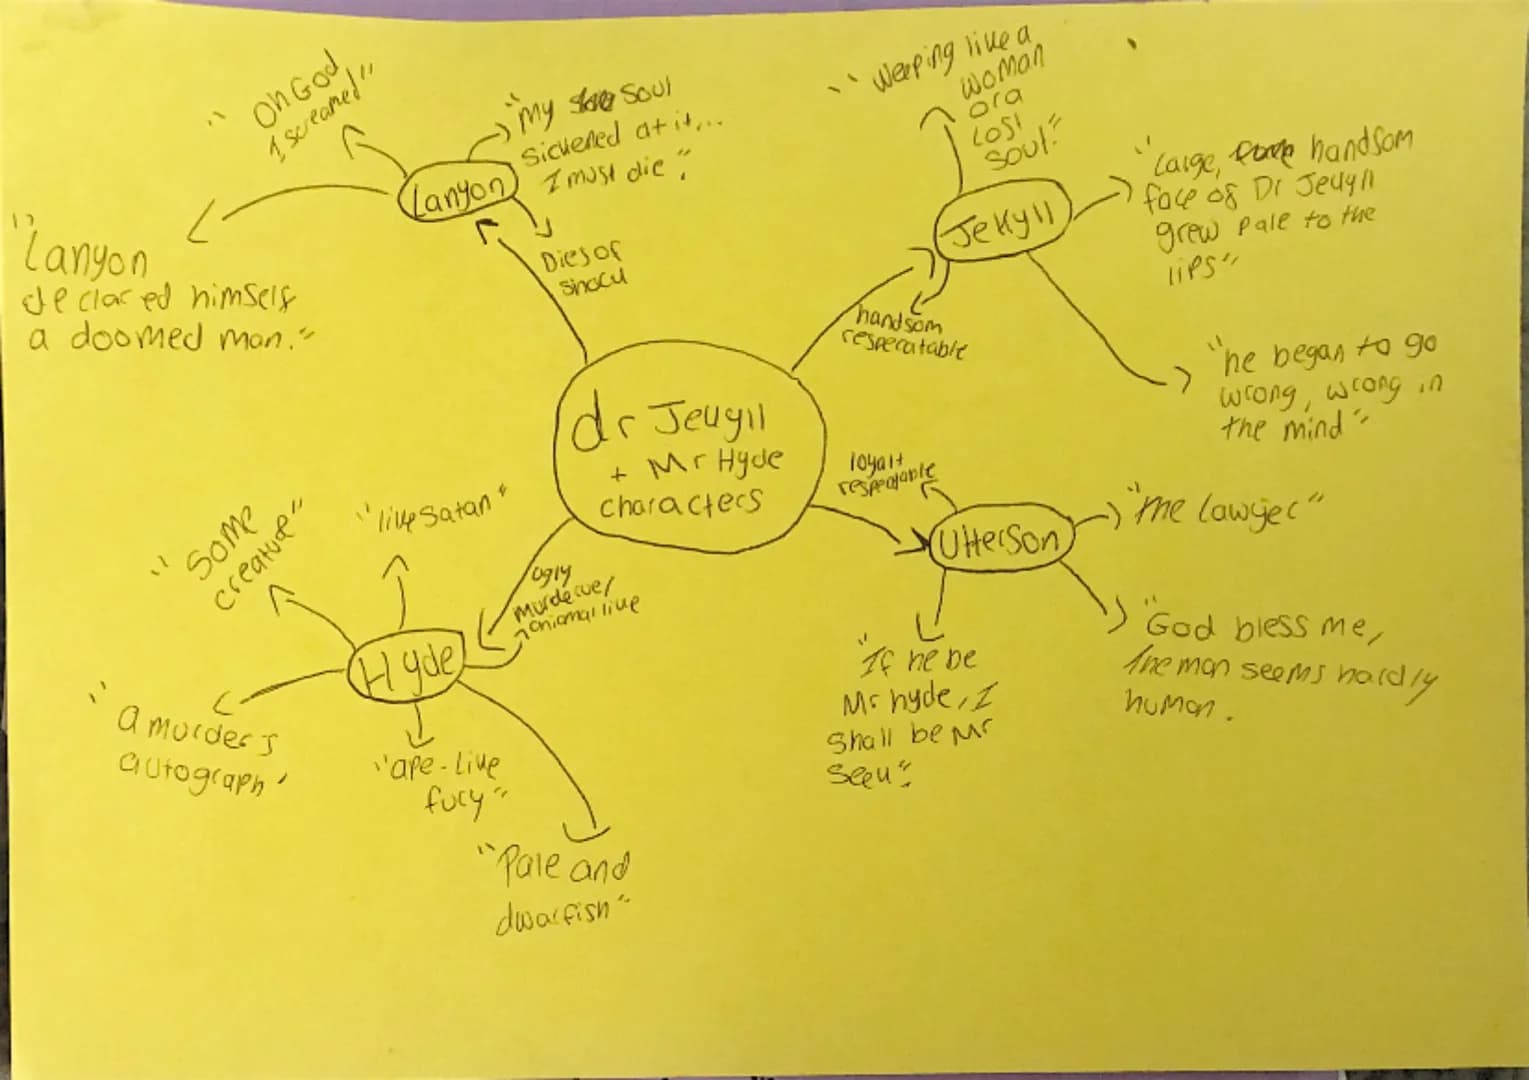 dr Jekyll
+ Mr Hyde
characters
Lanyon
"Oh God
I screamed"
"My soul
sickened at it...
I must die".
"Lanyon
declared himself
a doomed man."
Dies of
shock
Jekyll
"Weeping like a
woman
or a
lost
soul."
"Large, handsom
face of Dr Jekyll
grew pale to the
lips"
handsom
respecatable
"he began to go
wrong, wrong in
the mind"
Utterson
loyalt
respeatable
"the lawyer"
"God bless me,
the man seems hardly
human.
"If he be
Mr hyde, I
shall be Mr
seek".
Hyde
"some
creature"
"like Satan"
ugly
animal like
"a murder's
autograph'
"ape-like
fury"
"Pale and
dwarfish"